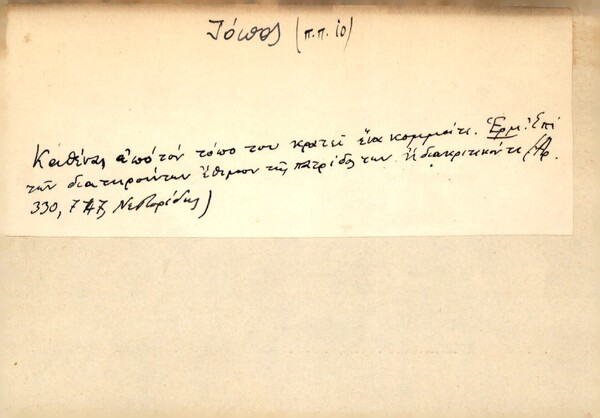 Τόπος (π.π. 10)
Καθένας ἀπό τόν τόπο του κρατεῖ ἕνα κομμάτι. Ἑρμ: Ἐπί
τῶν διατηρούντων ἔθιμον τῆς πατρίδος των ἤ διακριτικόν τι (Ἀρ.
330, 7 Νεβορίδης)